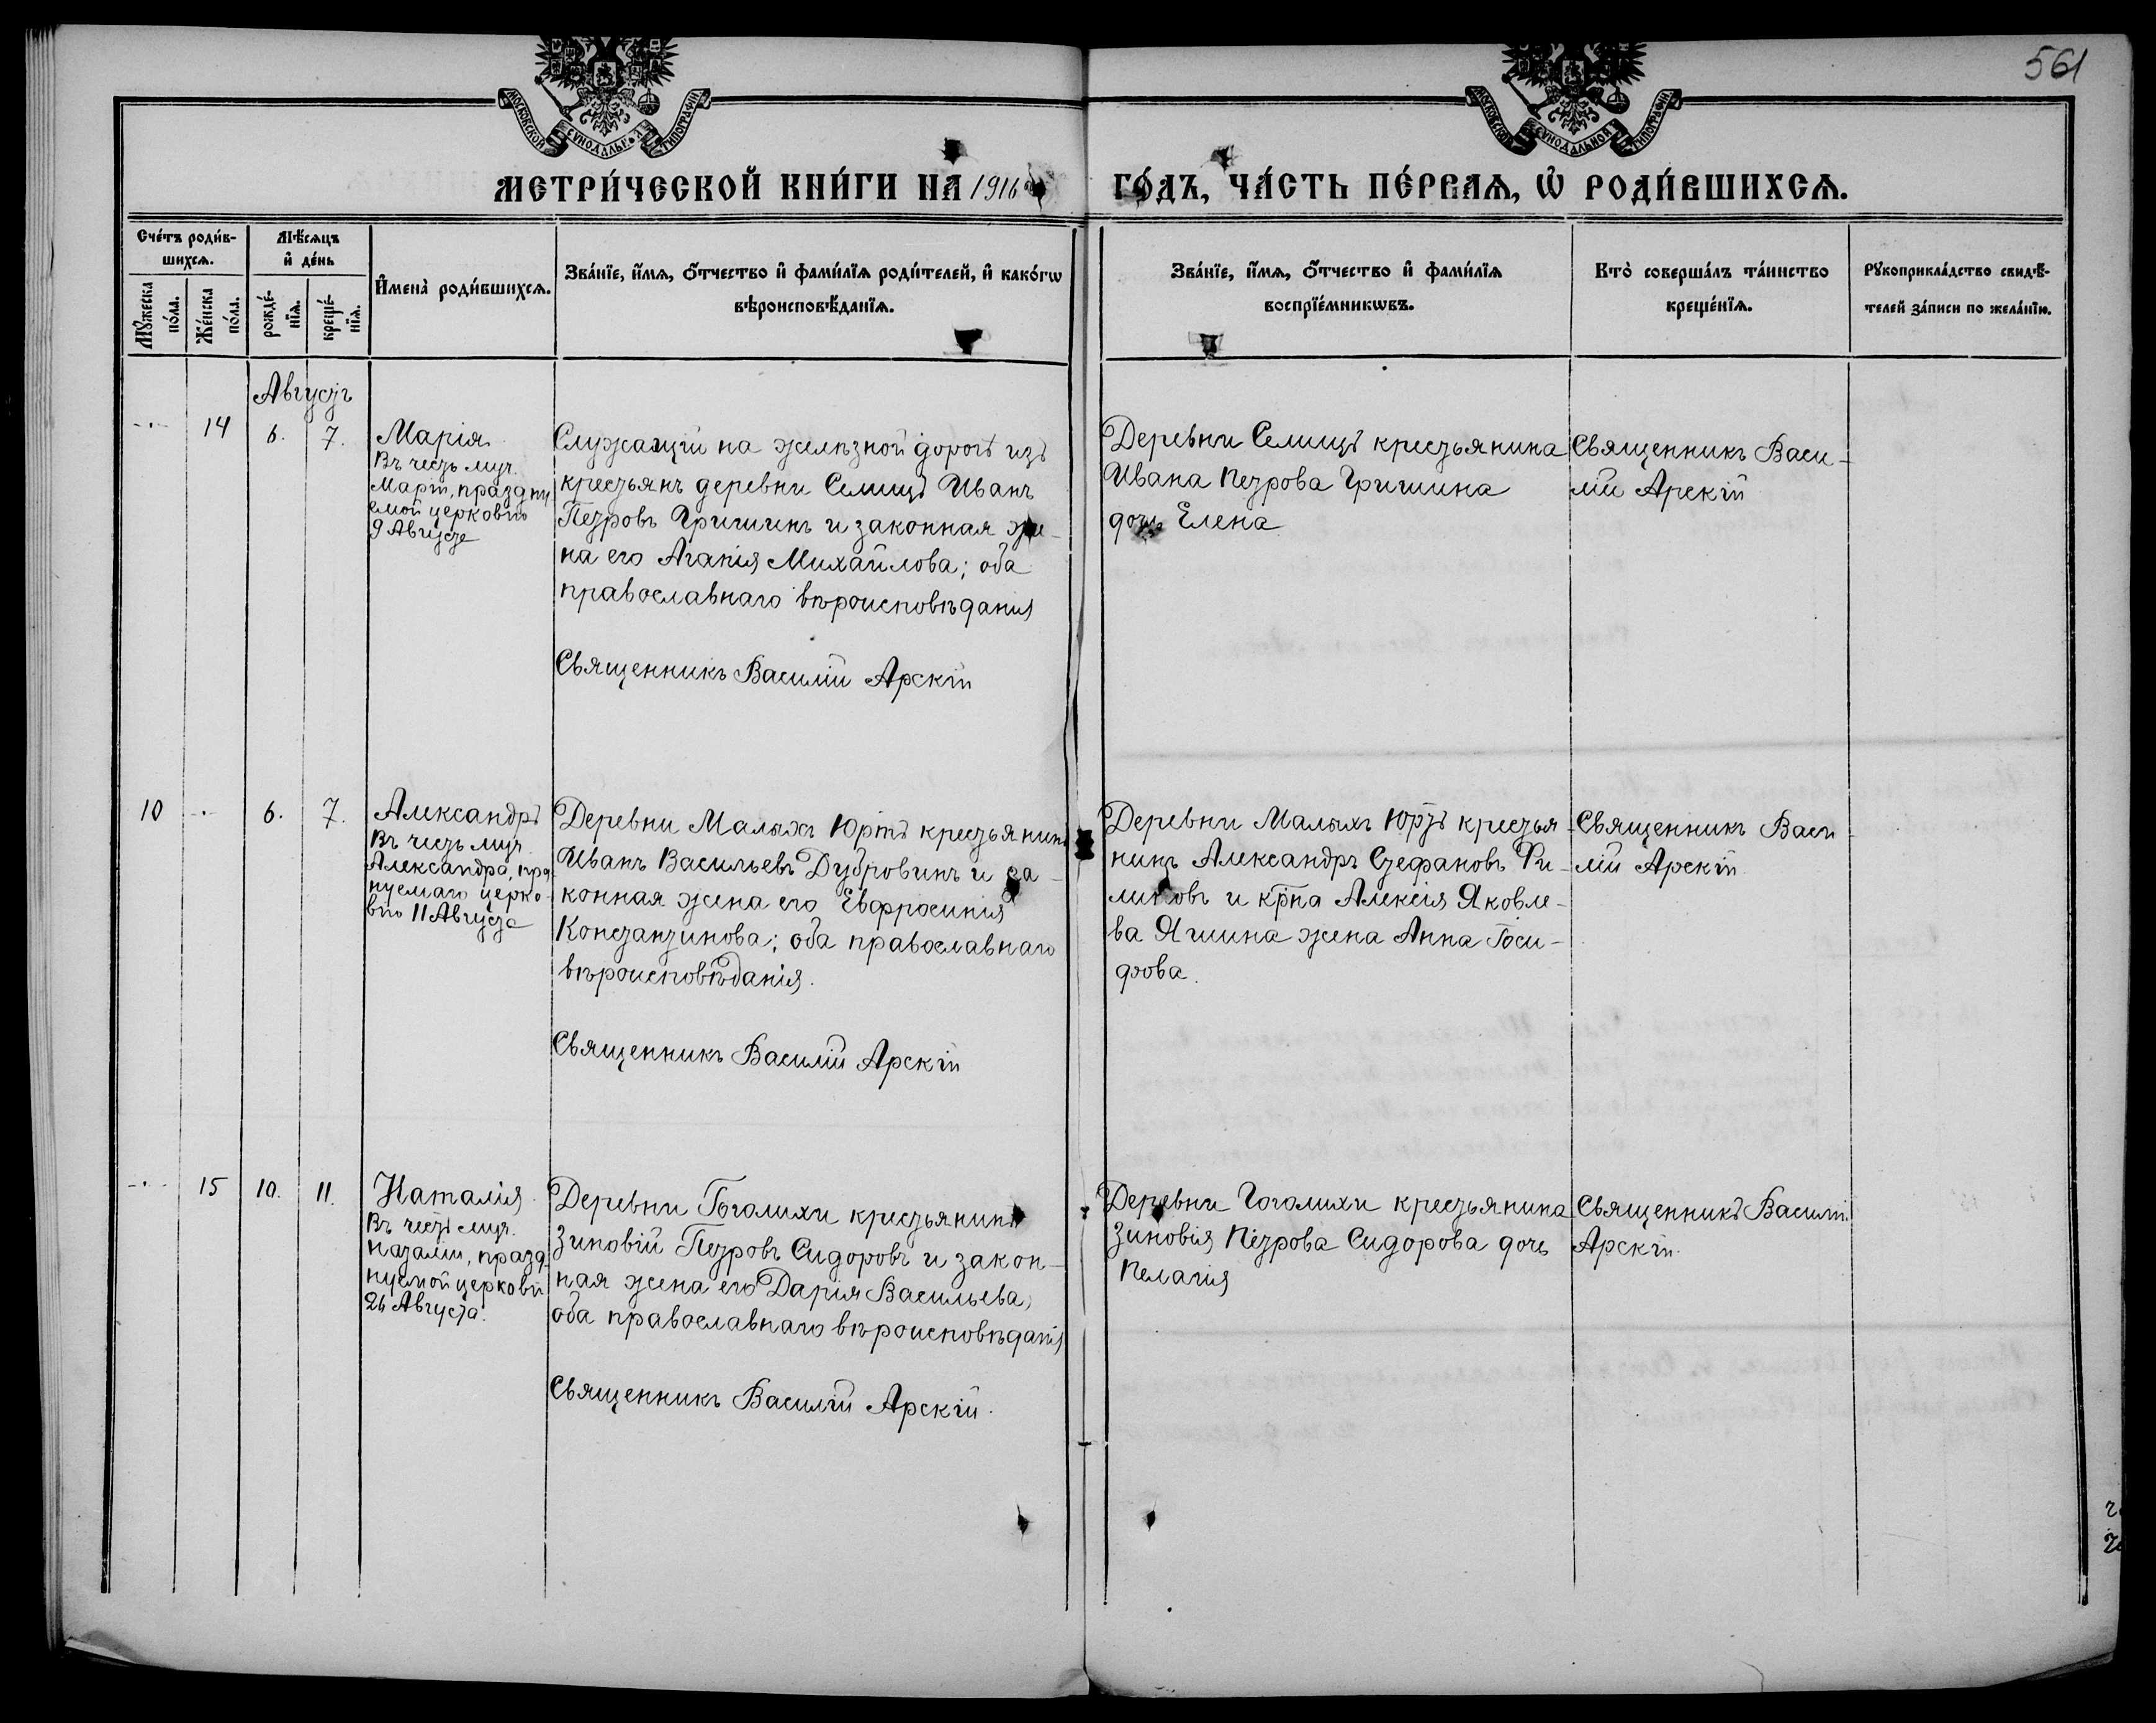 561
МОСКОВСКОЙ СѴНОДАЛЬНОЙ ТИПОГРАФІИ
МОСКОВСКОЙ СѴНОДАЛЬНОЙ ТИПОГРАФІИ
МЕТРИ́ЧЕСКОЙ КНИ́ГИ НА 1916 ГО́ДЪ, ЧА́СТЬ ПЕ́РВАѦ, Ѡ҆ РОДИ́ВШИХСѦ.
Сче́тъ роди́в-
шихсѧ.
Мꙋ́жеска
по́ла.
Же́нска
по́ла.
Мѣ́сѧцъ
и҆ де́нь
рожде́-
нїѧ.
креще́-
нїѧ.
И҆мена̀ роди́вшихсѧ.
Зва́нїе, и҆́мѧ, ѻ҆́тчество и҆ фами́лїѧ роди́телей, и҆ како́гѡ
вѣроисповѣ́данїѧ.
Зва́нїе, и҆́мѧ, ѻ҆́тчество и҆ фами́лїѧ
воспрїе́мникѡвъ.
Кто̀ соверша́лъ та́инство
креще́нїѧ.
Рꙋкоприкла́дство свидѣ́-
телей за́писи по жела́нїю.
Августъ
14 6. 7.
Марія
Въ честь муч.
Маріи, праздну
емой церковію
9 Августа
Служащій на желѣзной дорогѣ изъ
крестьянъ деревни Селищъ Иванъ
Петровъ Гришинъ и законная же-
на его Агапія Михайлова; оба
православнаго вѣроисповѣданія
Священникъ Василій Арскій
Деревни Селищъ крестьянина
Ивана Петрова Гришина
дочь Елена
Священникъ Васи-
лій Арскій
10 6. 7.
Александръ
Въ честь муч.
Александра, праз
нуемаго церко-
вію 11 Августа
Деревни Малыхъ Юртъ крестьянинъ
Иванъ Васильевъ Дубровинъ и за-
конная жена его Евфросинія
Константинова; оба православнаго
вѣроисповѣданія.
Священникъ Василій Арскій
Деревни Малыхъ Юртъ крестья-
нинъ Александръ Стефановъ Фи-
липовъ и крна Алексія Яковле-
ва Яшина жена Анна Іоси-
фова.
Священникъ Васи
лій Арскій
15 10. 11.
Наталія
Въ честь муч.
Наталіи, празд-
нуемой церковію
26 Августа.
Деревни Гоголихи крестьянинъ
Зиновій Петровъ Сидоровъ и закон-
ная жена его Дарія Васильева,
оба православнаго вѣроисповѣданія
Священникъ Василій Арскій.
Деревни Гоголихи крестьянина
Зиновія Петрова Сидорова дочь
Пелагія
Священникъ Василій
Арскій.